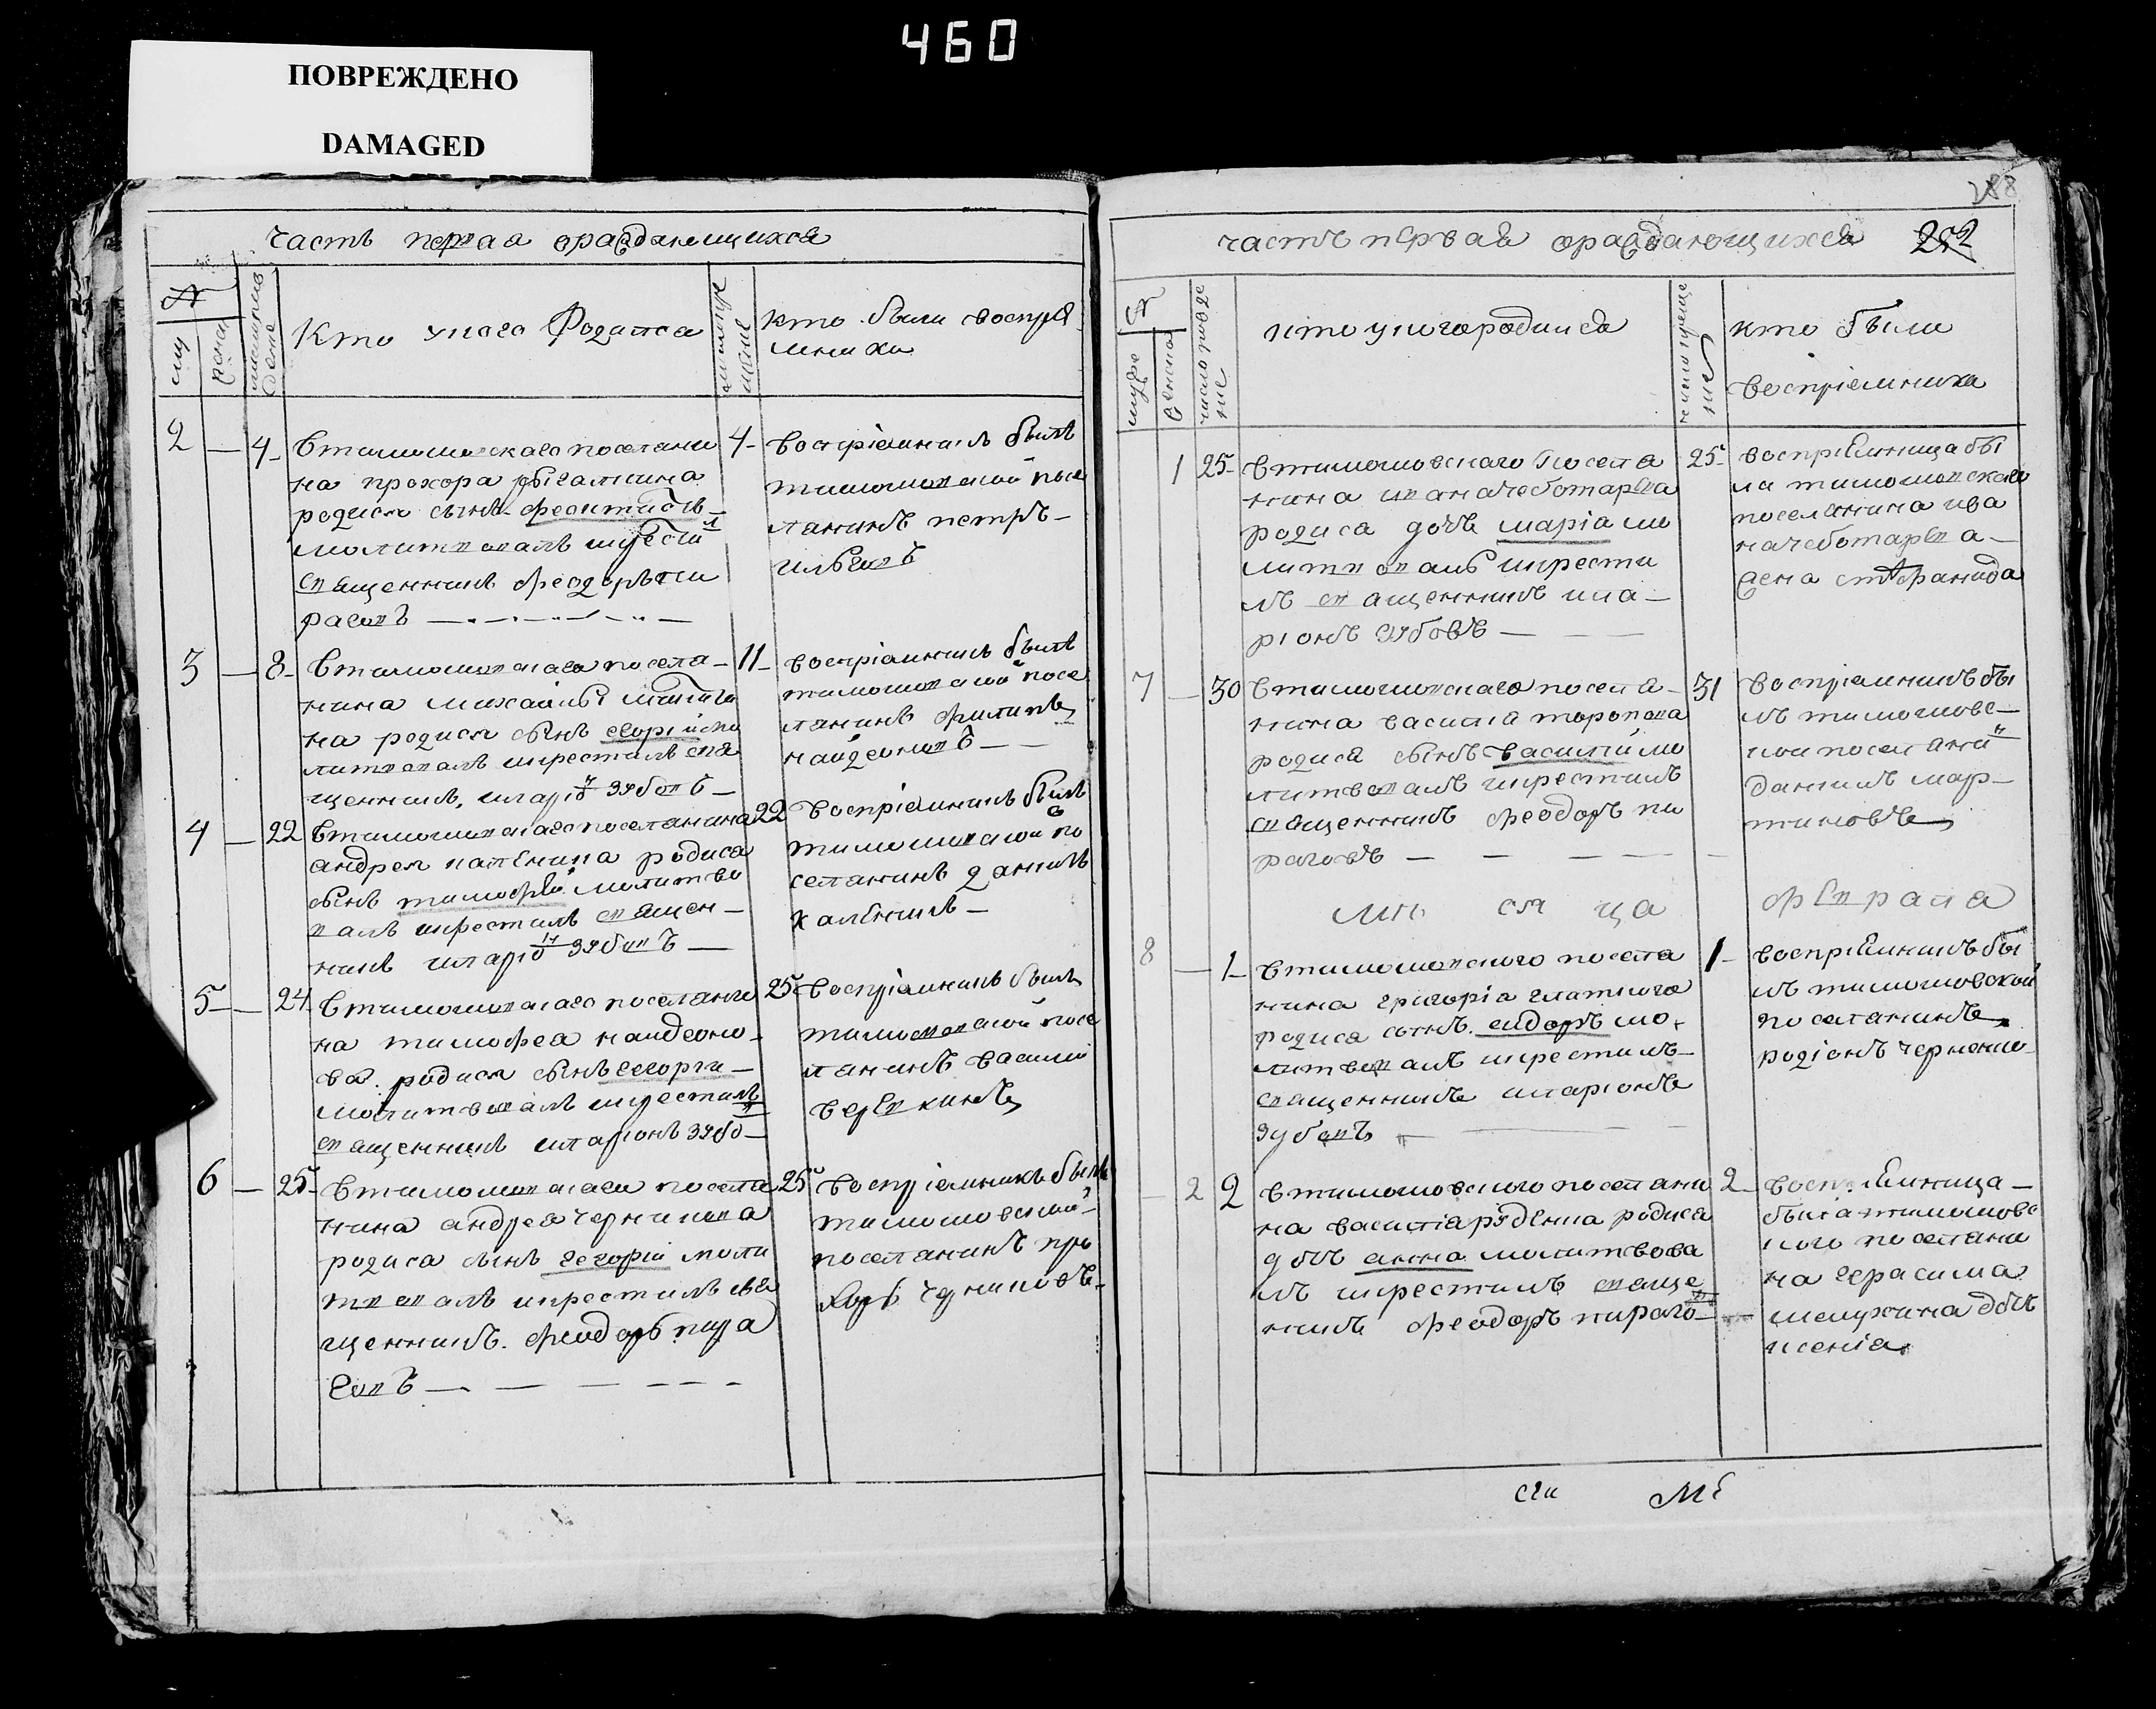 460
ПОВРЕЖДЕНО
DAMAGED
часть первая ораждающихся
№
муж
жена
Кто у кого Родился
кто были воспрѣ
мники
2 — 4 Втимошевскаго поселени
на прохора
родися сынъ феоктистъ
молитвовалъ икрести
священникъ феодоръ пи
раговъ
4 воспріемникъ былъ
тимошевской посе
ленинъ петръ
3 — 8 Втимошевскаго поселе
нина михаилы
на родися сынъ егорій мо
литвовалъ икрестилъ свя
щенникъ иларіонъ Зубовъ
11 воспріемникъ былъ
тимошевской посе
ленинъ филипъ
найденовъ
4 — 22 Втимошевскаго поселенина
андрея каленика родися
сынъ тимофей молитво
валъ икрестилъ священ
никъ иларіонъ Зубовъ
22 воспріемникъ былъ
тимошевской по
селенинъ данилъ
каленикъ
5 — 24 Втимошевскаго поселени
на тимофея найдено
ва родися сынъ егорги
молитвовалъ икрестилъ
священникъ иларіонъ Зубо
25 воспріемникъ былъ
тимошевской посе
ленинъ василій
веревкинъ
6 — 25 Втимошевскаго поселе
нина андрея черникова
родися сынъ егорій моли
твовалъ икрестилъ свя
щенникъ феодоръ пира
говъ
25 воспріемникъ былъ
тимошевский
поселенинъ про
хоръ черниковъ
288
часть первая ораждающихся 252
№
мужс
женска
число рожде
ние
кто у когородился
число креще
ние
кто были
воспріемники
1 25 втимошевского поселе
нина ивана чеботарева
родися дочь марія мо
литвовалъ икрести
лъ священникъ ила
ріонъ Зубовъ
25 воспріемница бы
ла тимошевскаго
поселенина ива
на чеботарева
жена стефанида
7 — 30 Втимошевскаго поселе
нина василія торопова
родися сынъ василій мо
литвовалъ икрестилъ
священникъ феодоръ пи
раговъ
31 воспріемникъ бы
лъ тимошевс
кой поселенинъ
данилъ мар
тиновъ
мѣ ся ца февраля
8 — 1 втимошевского поселе
нина григорія гладкого
родися сынъ сидоръ мо
литвовалъ икрестилъ
священникъ иларіонъ
зубовъ
1 воспріемникъ бы
лъ тимошевской
поселенинъ
родіонъ черненко
2 2 втимошевского поселени
на василія руденка родися
дочь анна молитвова
лъ икрестилъ священ
никъ феодоръ пираго
2 воспріемница
была тимошевс
кого поселени
на герасима
дочь
ксенія